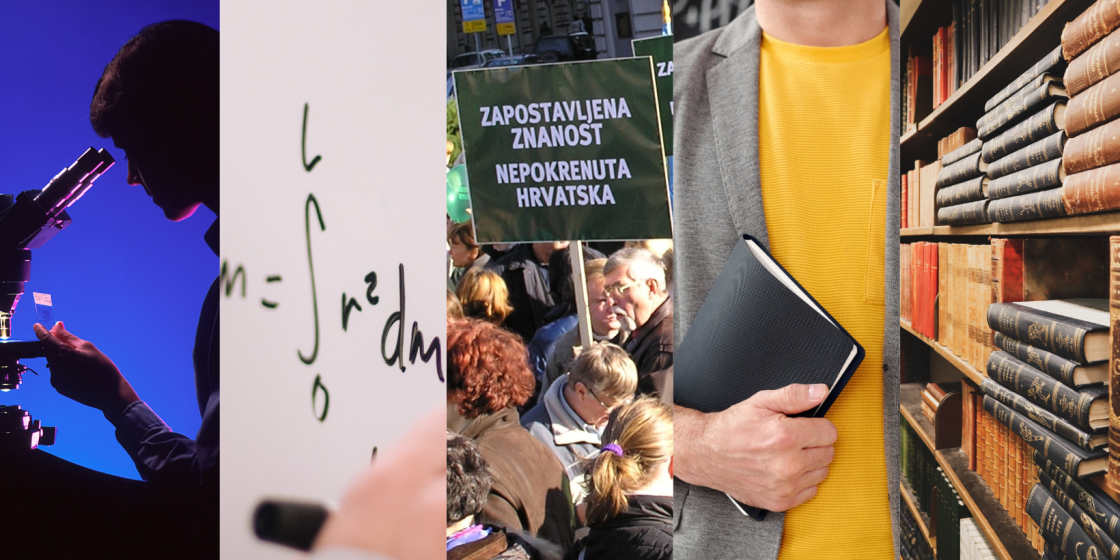 L
m = ∫ r² dm
0
ZAPOSTAVLJENA
ZNANOST
NEPOKRENUTA
HRVATSKA
ZA